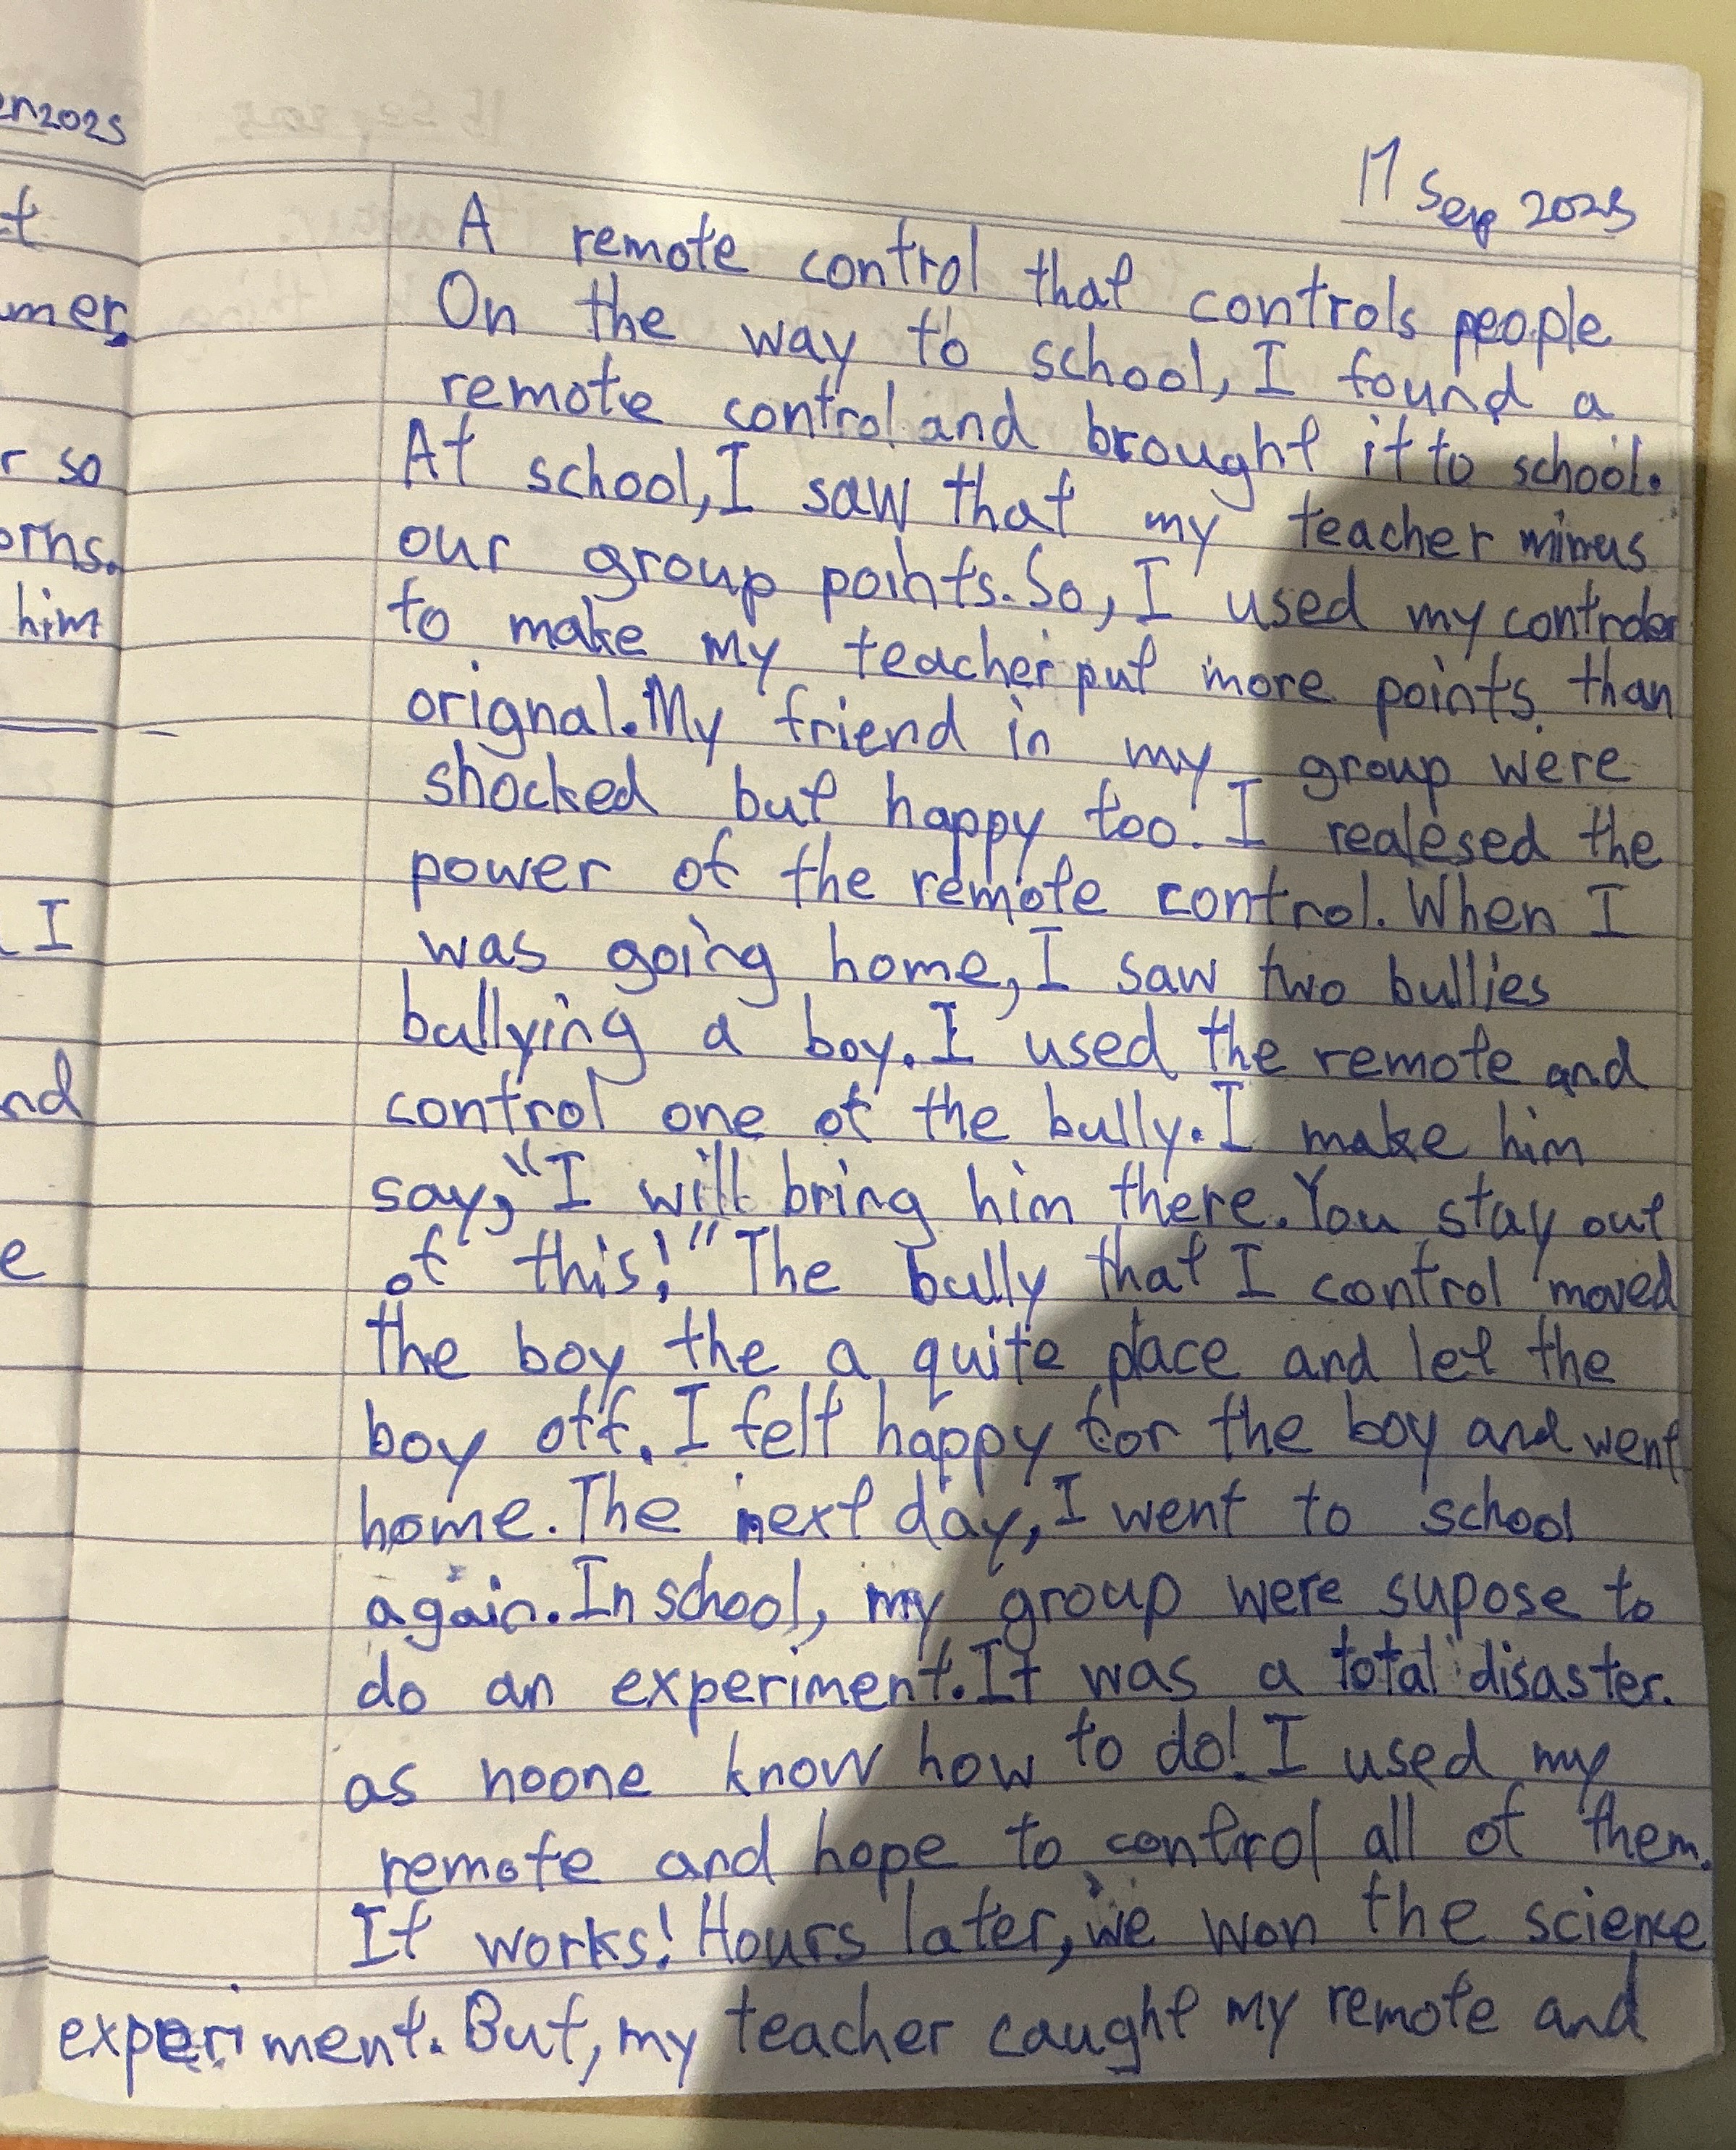 en2025
t
mer.
r so
orns.
him
I
nd
e
17 Sep 2025
A remote control that controls people
On the way to school, I found a
remote control and brought it to school.
At school, I saw that my teacher minus
our group points. So, I used my controler
to make my teacher put more points than
orignal. My friend in my group were
shocked but happy too. I realesed the
power of the remote control. When I
was going home, I saw two bullies
bullying a boy. I used the remote and
control one of the bully. I make him
say, "I will bring him there. You stay out
of this!" The bully that I control moved
the boy the a quite place and let the
boy off. I felt happy for the boy and went
home. The next day, I went to school
again. In school, my group were supose to
do an experiment. It was a total disaster.
as noone know how to do! I used my
remote and hope to control all of them.
It works! Hours later, we won the science
experiment. But, my teacher caught my remote and